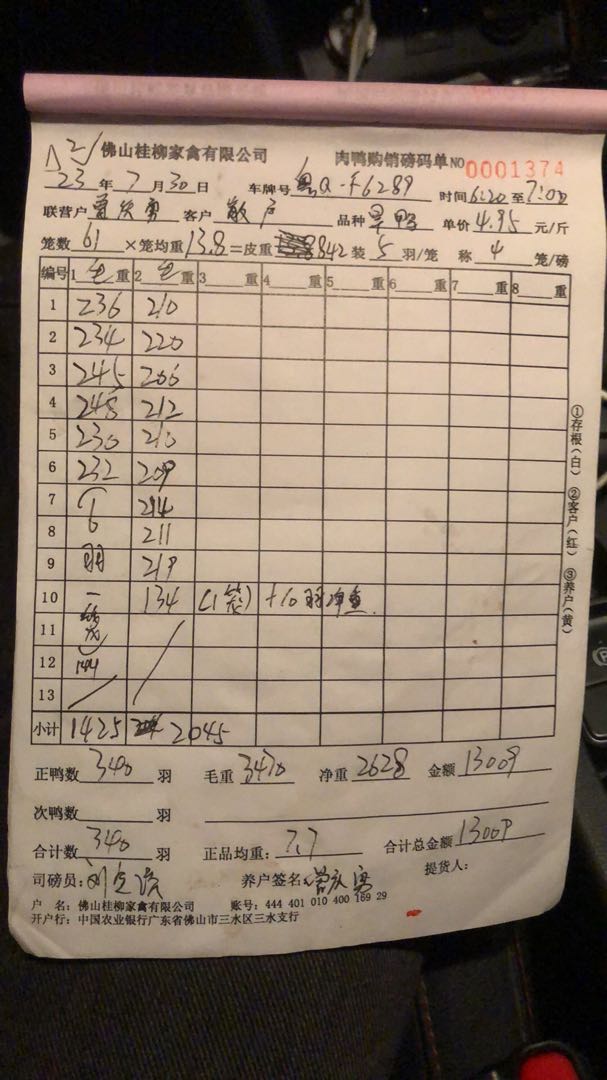 佛山桂柳家禽有限公司 肉鸭购销磅码单 NO 0001374
23 年 7 月 30 日 车牌号 粤Q-F6289 时间 6:20 至 7:00
联营户 曾庆勇 客户 散户 品种 旱鸭 单价 4.95 元/斤
笼数 61 ×笼均重 13.8 =皮重 842 装 5 羽/笼 称 4 笼/磅
编号 1 毛 重 2 毛 重 3 重 4 重 5 重 6 重 7 重 8 重
1 236 210
2 234 220
3 245 206
4 248 212
5 230 210
6 232 209
7 (6 214
8 211
9 羽 219
10 一 134 (1笼) +10羽净重
11
12
13
小计 1425 2045
正鸭数 340 羽 毛重 3470 净重 2628 金额 13009
次鸭数 羽
合计数 340 羽 正品均重: 7.7 合计总金额 13009
司磅员: 养户签名: 曾庆勇 提货人:
户 名: 佛山桂柳家禽有限公司 账号: 444 401 010 400 169 29
开户行: 中国农业银行广东省佛山市三水区三水支行
①存根(白) ②客户(红) ③养户(黄)